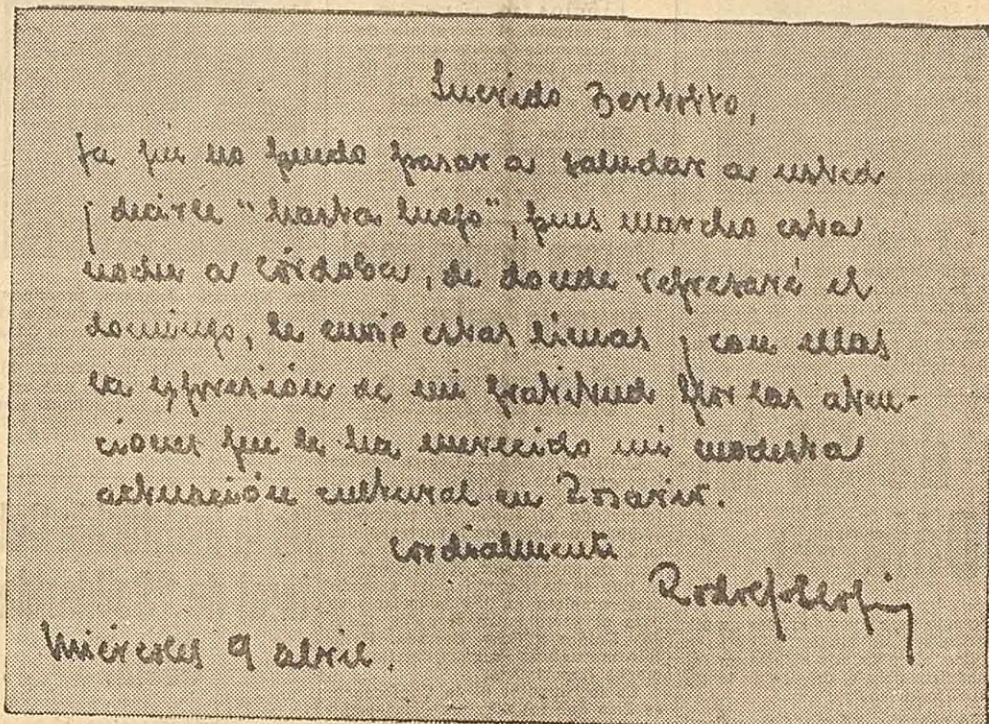 Querido Bertotto,
Ya que no puedo pasar a saludar a usted
y decirle "hasta luego", pues marcho esta
noche a Córdoba, de donde regresaré el
domingo, le envío estas líneas y con ellas
la expresión de mi gratitud por las aten-
ciones que le ha merecido mi modesta
actuación cultural en Rosario.
Cordialmente
Miércoles 9 abril.